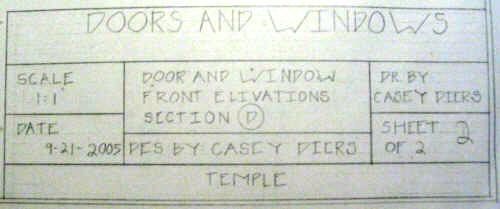 DOORS AND WINDOWS
SCALE
1:1
DATE
9-21-2005
DOOR AND WINDOW
FRONT ELIVATIONS
SECTION D
DES BY CASEY DIERS
DR BY
CASEY DIERS
SHEET 2
OF 2
TEMPLE